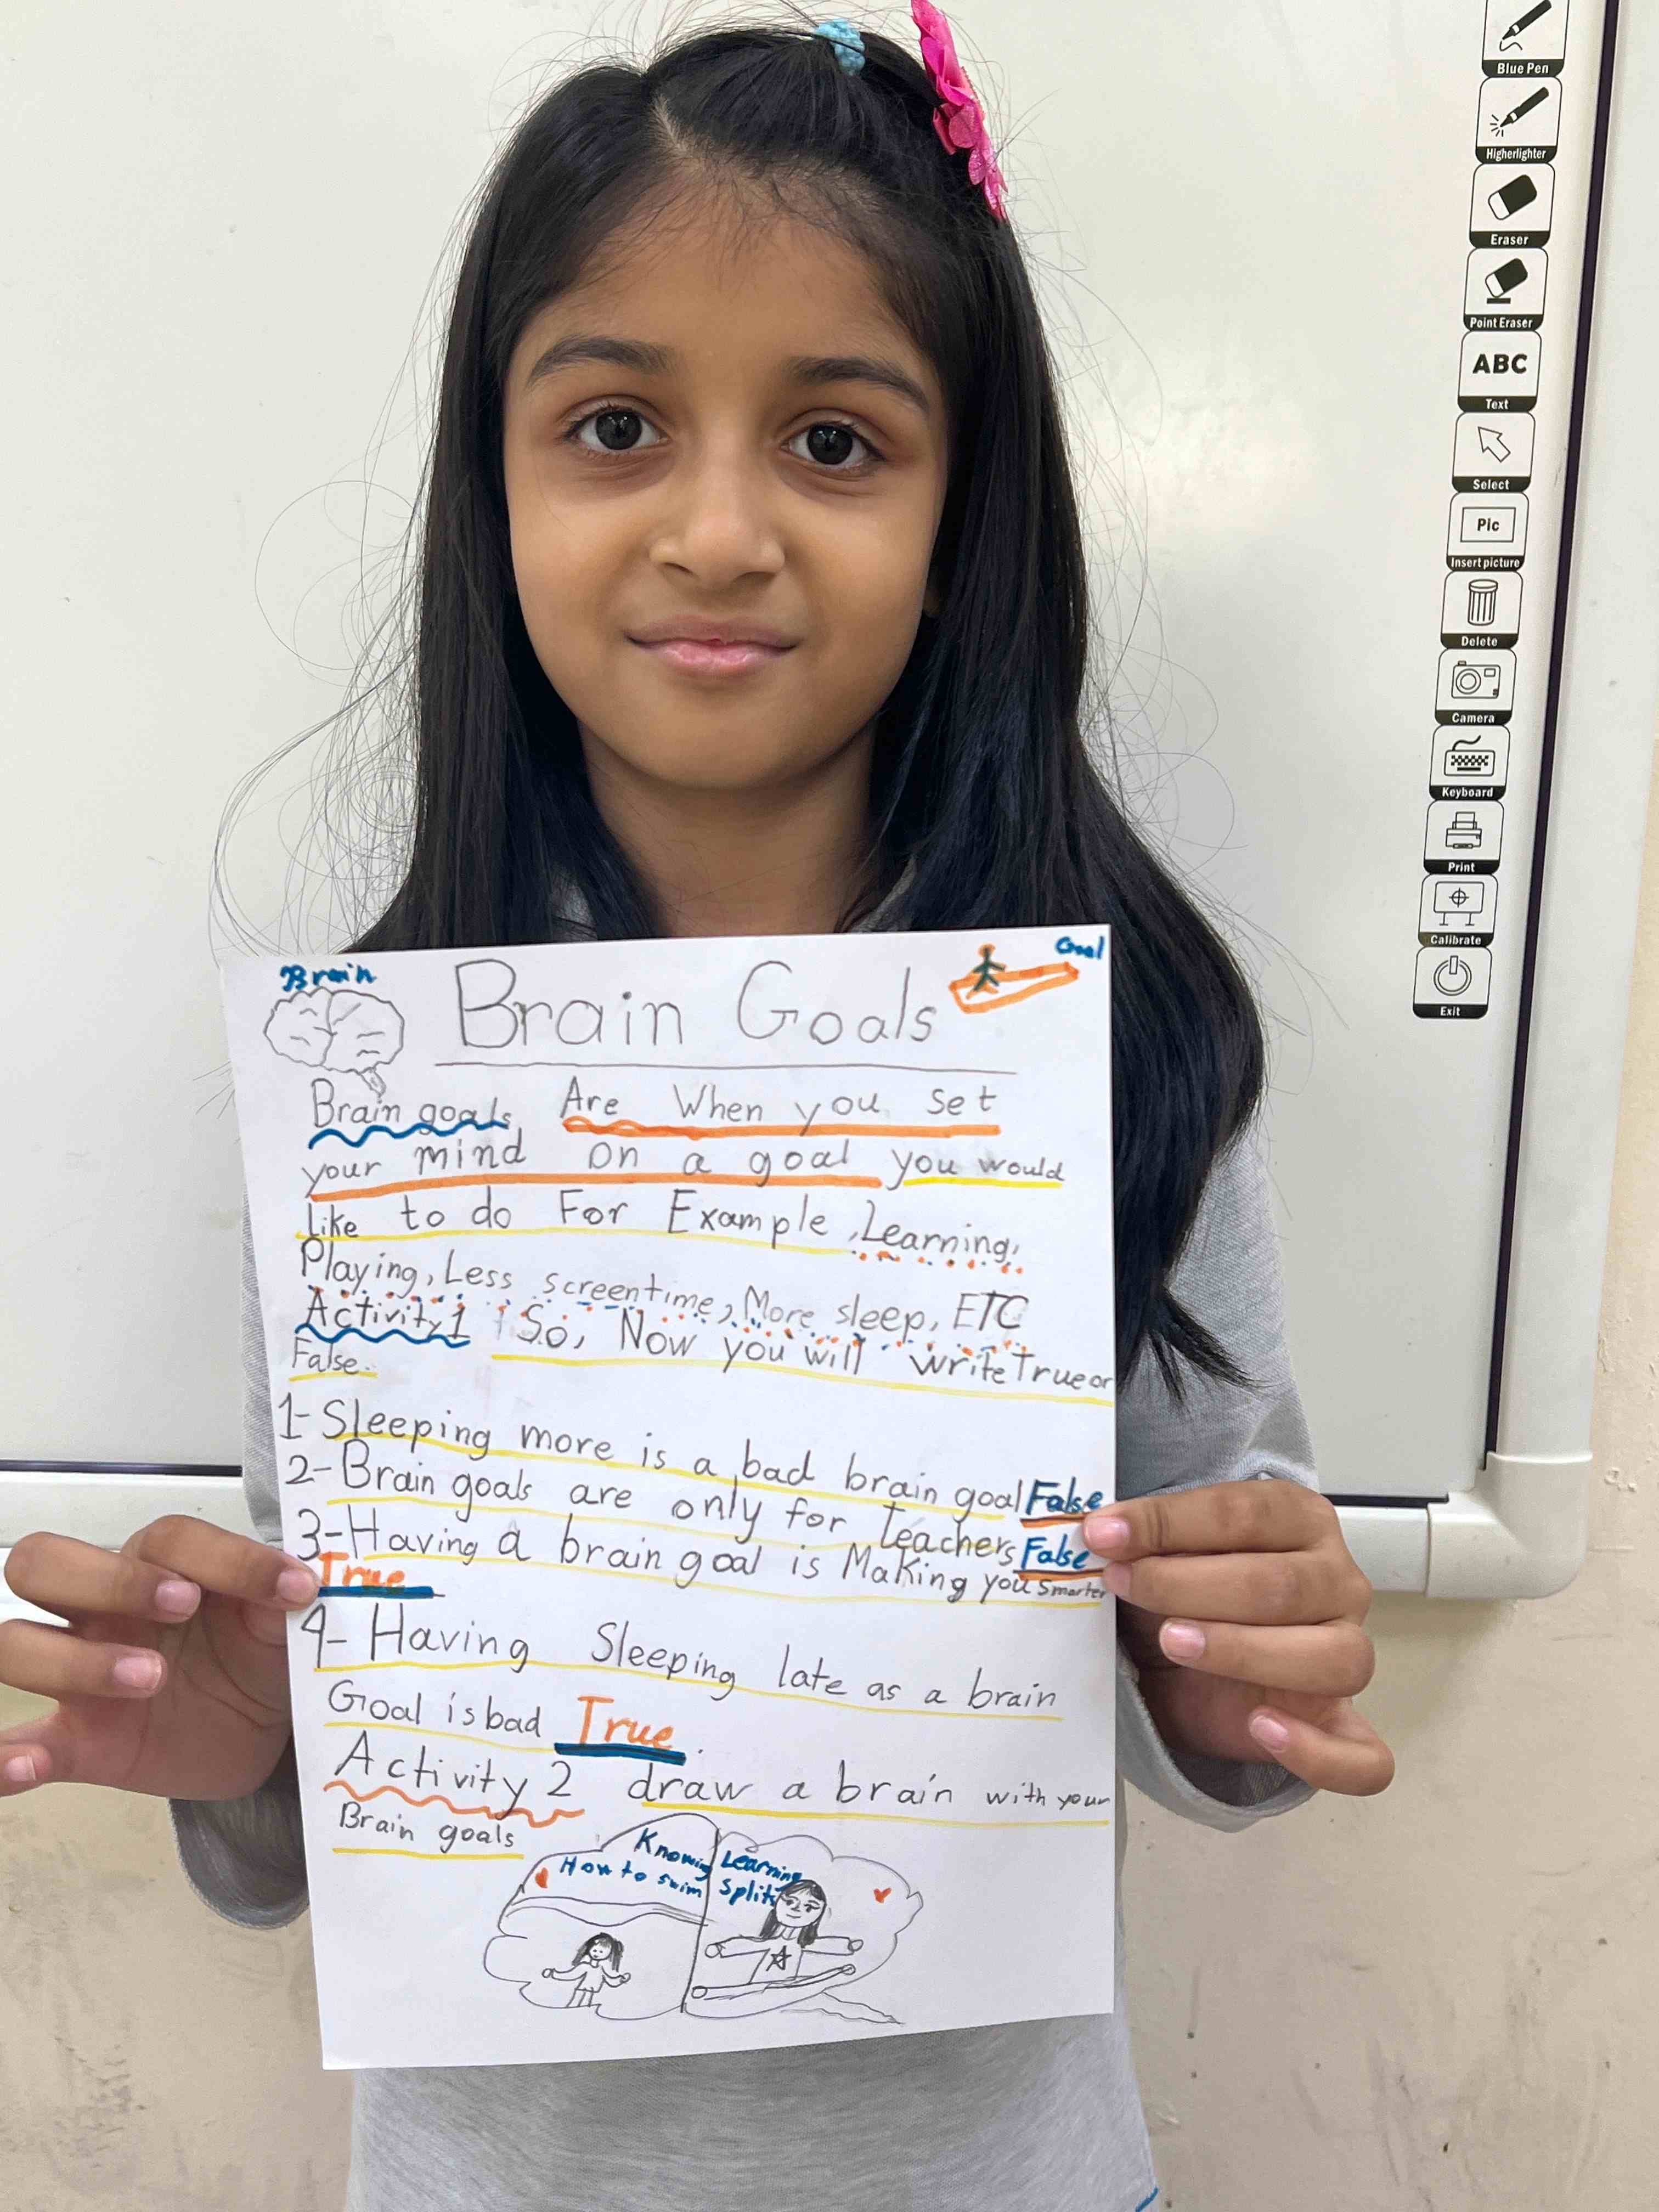 Blue Pen
Higherlighter
Eraser
Point Eraser
ABC
Text
Select
Pic
Insert picture
Delete
Camera
Keyboard
Print
Calibrate
Exit
Brain
Goal
Brain Goals
Brain goals Are When you set
your mind on a goal you would
Like to do For Example, Learning,
Playing, Less screentime, More sleep, ETC
Activity 1 So, Now you will write True or
False.
1- Sleeping more is a bad brain goal False
2- Brain goals are only for teachers False
3- Having a brain goal is Making you Smarter
True
4- Having Sleeping late as a brain
Goal is bad True.
Activity 2 draw a brain with your
Brain goals
Knowing
How to swim
Learning
Splits